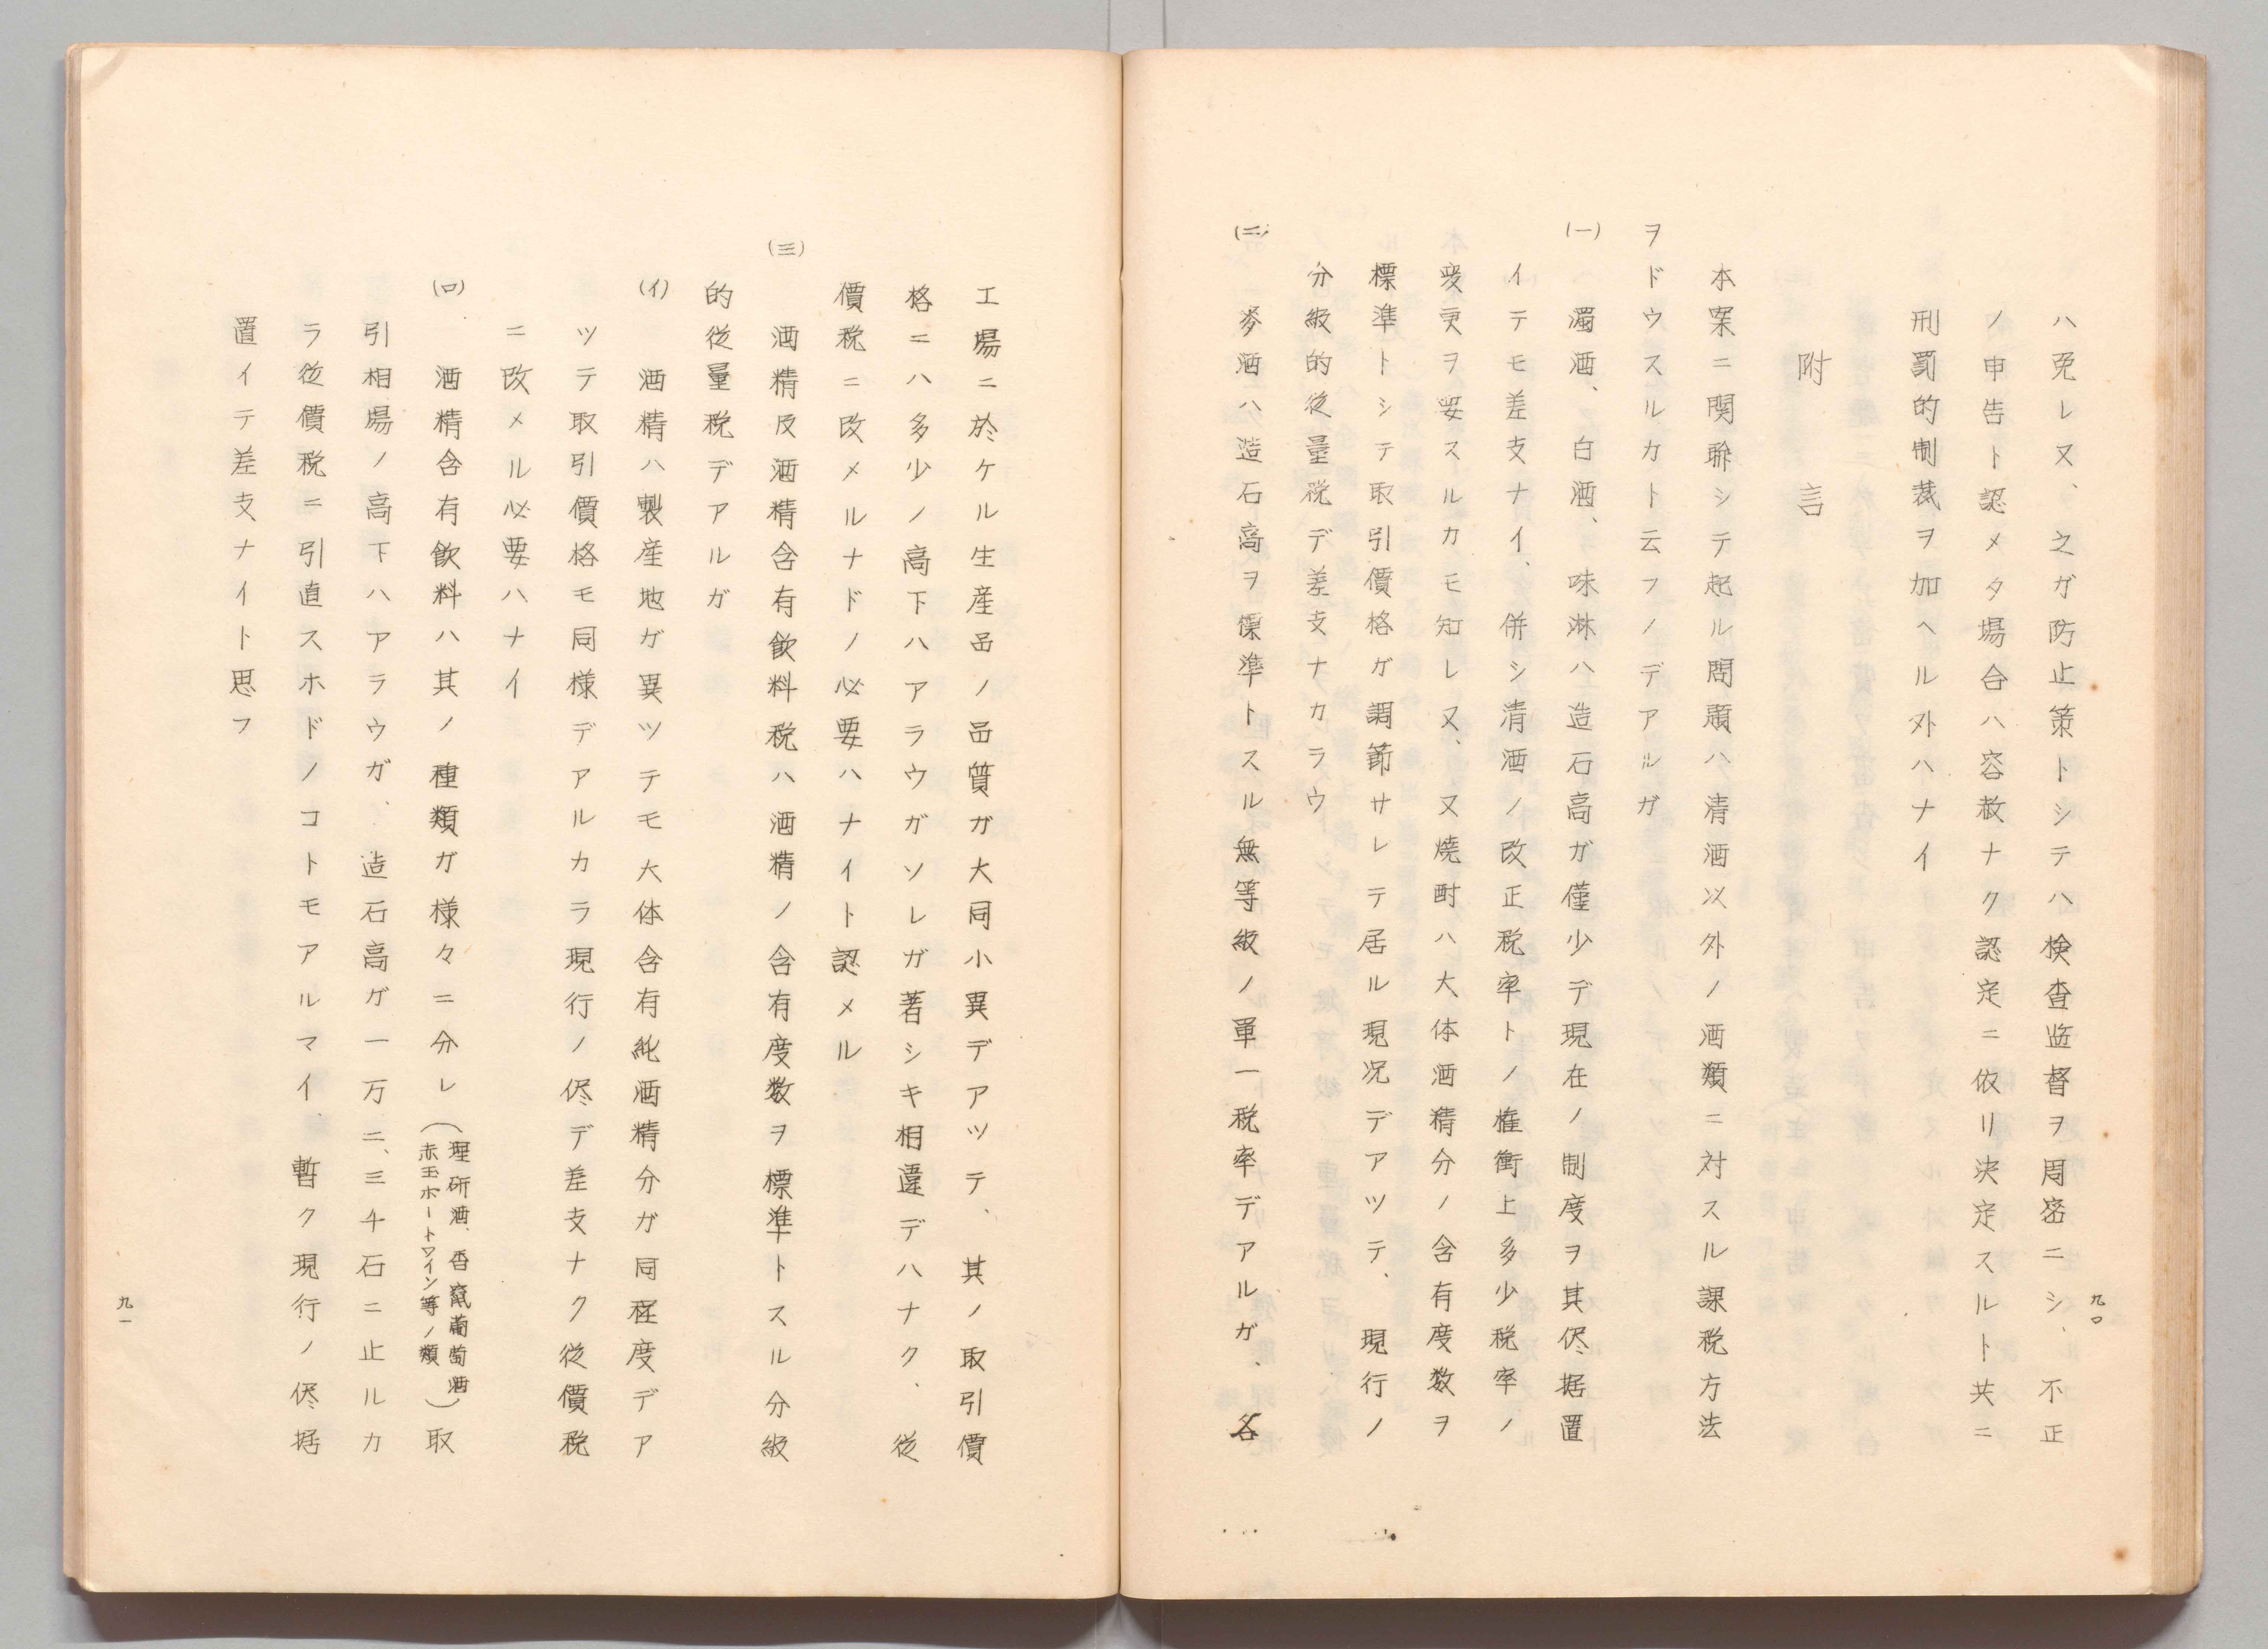 九〇
ハ免レ又、之ガ防止策トシテハ検査監督ヲ周密ニシ、不正
ノ申告ト認メタ場合ハ容赦ナク認定ニ依リ決定スルト共ニ
刑罰的制裁ヲ加ヘル外ハナイ
附言
本案ニ関聯シテ起ル問題ハ清酒以外ノ酒類ニ対スル課税方法
ヲドウスルカト云フノデアルガ
(一) 濁酒、白酒、味淋ハ造石高ガ僅少デ現在ノ制度ヲ其侭据置
イテモ差支ナイ、併シ清酒ノ改正税率トノ権衡上多少税率ノ
変更ヲ要スルカモ知レヌ、又焼酎ハ大体酒精分ノ含有度数ヲ
標準トシテ取引價格ガ調節サレテ居ル現况デアツテ、現行ノ
分級的従量税デ差支ナカラウ
(二) 麥酒ハ造石高ヲ標準トスル無等級ノ単一税率デアルガ、各
工場ニ於ケル生産品ノ品質ガ大同小異デアツテ、其ノ取引價
格ニハ多少ノ高下ハアラウガソレガ著シキ相違デハナク、従
價税ニ改メルナドノ必要ハナイト認メル
(三) 酒精及酒精含有飲料税ハ酒精ノ含有度数ヲ標準トスル分級
的従量税デアルガ
(イ) 酒精ハ製産地ガ異ツテモ大体含有純酒精分ガ同程度デア
ツテ取引價格モ同様デアルカラ現行ノ侭デ差支ナク従價税
ニ改メル必要ハナイ
(ロ) 酒精含有飲料ハ其ノ種類ガ様々ニ分レ(理研酒、香竄葡萄酒、赤玉ポートワイン等ノ類)取
引相場ノ高下ハアラウガ、造石高ガ一万二、三千石ニ止ルカ
ラ従價税ニ引直スホドノコトモアルマイ、暫ク現行ノ侭据
置イテ差支ナイト思フ
九一